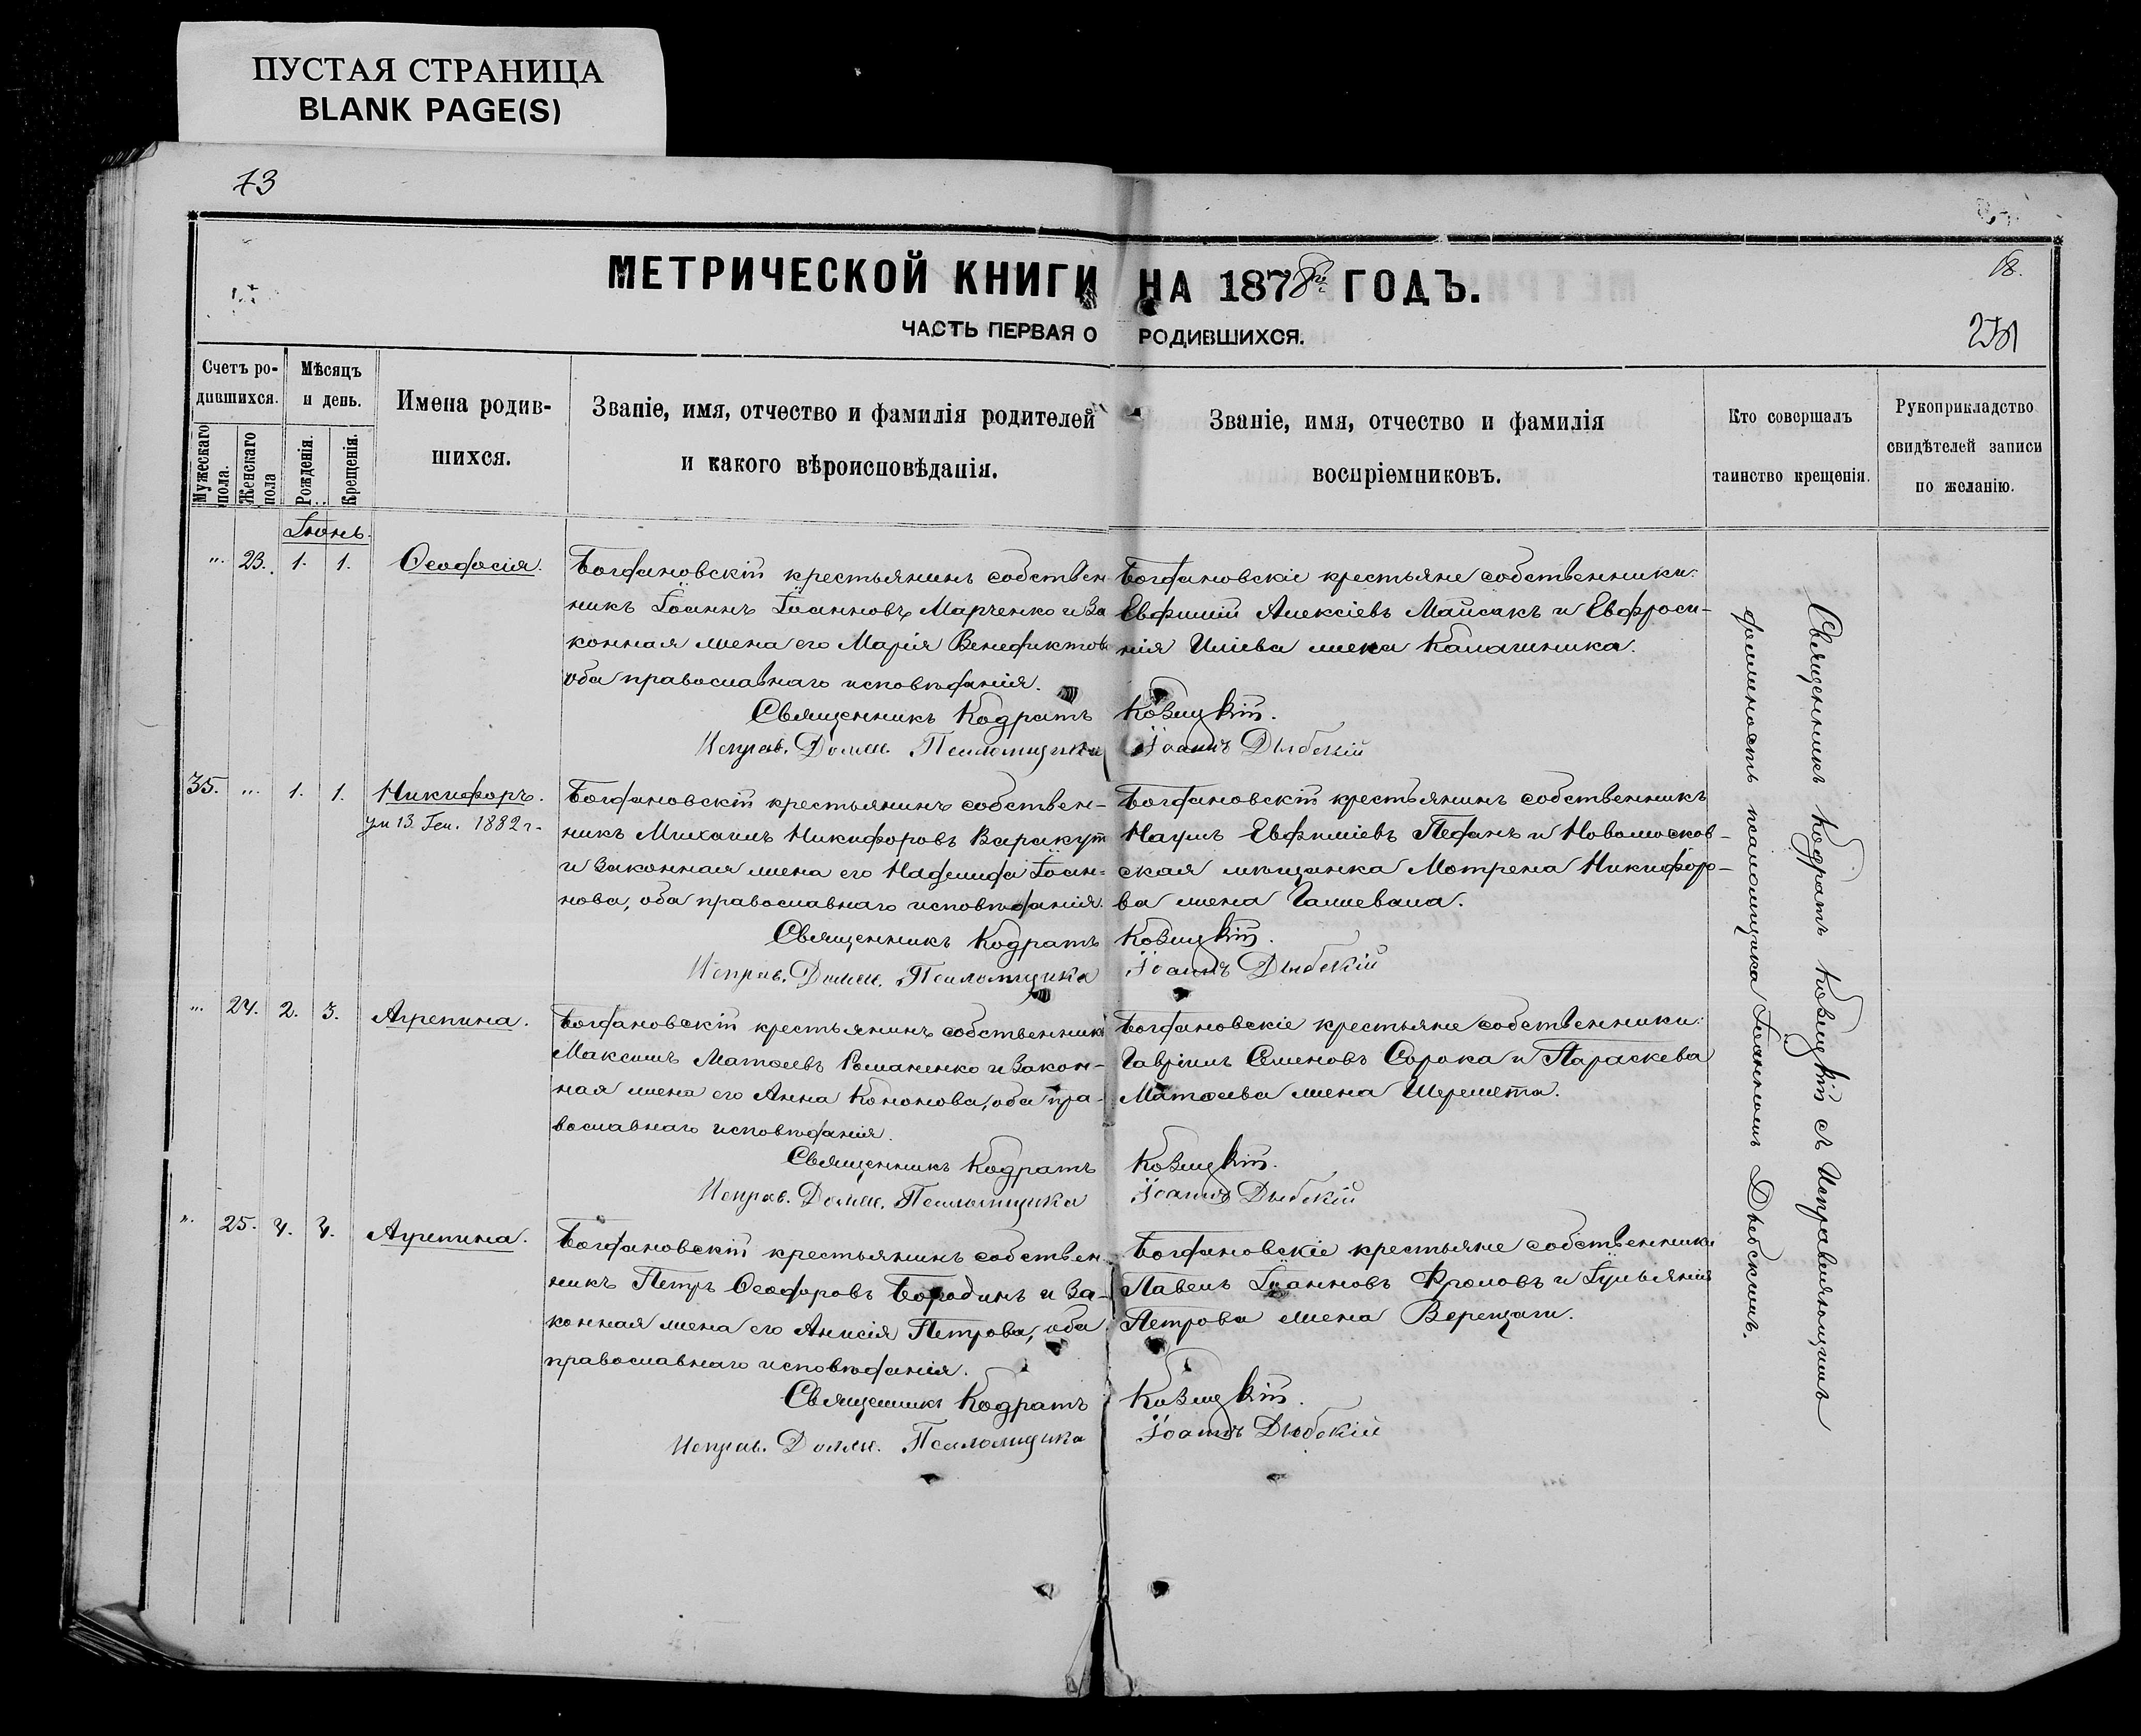 ПУСТАЯ СТРАНИЦА
BLANK PAGE(S)
73
18.
МЕТРИЧЕСКОЙ КНИГИ НА 1878 ГОДЪ.
ЧАСТЬ ПЕРВАЯ О РОДИВШИХСЯ.
251
Счетъ ро-
дившихся.
Мужескаго пола.
Женскаго пола
Мѣсяцъ
и день.
Рожденія.
Крещенія.
Имена родив-
шихся.
Званіе, имя, отчество и фамилія родителей
и какого вѣроисповѣданія.
Званіе, имя, отчество и фамилія
воспріемниковъ.
Кто совершалъ
таинство крещенія.
Рукоприкладство
свидѣтелей записи
по желанію.
Іюнь.
„ 23. 1. 1. Ѳеодосія.
Богдановскій крестьянинъ собствен
никъ Іоаннъ Іоанновъ Марченко и за
конная жена его Марія Венедиктова
оба православнаго исповѣданія.
Богдановскіе крестьяне собственники:
Евфимій Алексіевъ Майсакъ и Евфроси-
нія Иліева жена Калашника.
Священникъ Кодратъ Козицкій.
Исправ. Долж. Псаломщика Іоаннъ Дыбскій
35. „ 1. 1. Никифоръ.
ум 13. Ген. 1882 г.
Богдановскій крестьянинъ собствен-
никъ Михаилъ Никифоровъ Варакут
и законная жена его Надежда Іоан-
нова, оба православнаго исповѣданія.
Богдановскій крестьянинъ собственникъ
Наумъ Евфиміевъ Педанъ и Новомосков-
ская мѣщанка Мотрена Никифоро-
ва жена
Священникъ Кодратъ Козицкій.
Исправ. Долж. Псаломщика Іоаннъ Дыбскій
„ 24. 2. 3. Агрепина.
Богдановскій крестьянинъ собственникъ
Максимъ Матѳеевъ Романенко и закон-
ная жена его Анна Кононова, оба пра-
вославнаго исповѣданія.
Богдановскіе крестьяне собственники:
Гавріилъ Семеновъ Сорока и Параскева
Матѳеева жена Шеремета.
Священникъ Кодратъ Козицкій.
Исправ. Долж. Псаломщика Іоаннъ Дыбскій
„ 25. 4. 4. Агрепина.
Богдановскій крестьянинъ собствен
никъ Петръ Ѳеодоровъ Бородинъ и за-
конная жена его Анисія Петрова, оба
православнаго исповѣданія.
Богдановскіе крестьяне собственники
Павелъ Іоанновъ Фроловъ и Іуліанія
Петрова жена Верещаги.
Священникъ Кодратъ Козицкій.
Исправ. Долж. Псаломщика Іоаннъ Дыбскій
Священникъ Кодратъ Козицкій съ Исправляющимъ
должность псаломщика Іоанномъ Дыбскимъ.